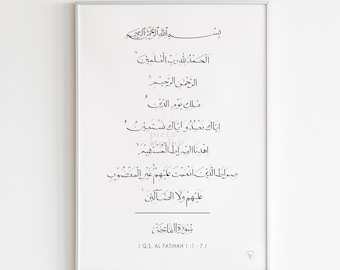 بسم الله الرحمن الرحيم
الحمد لله رب العلمين
الرحمن الرحيم
ملك يوم الدين
اياك نعبد واياك نستعين
اهدنا الصراط المستقيم
صراط الذين انعمت عليهم غير المغضوب
عليهم ولا الضالين
سورة الفاتحة
/ Q.S. AL FATIHAH 1 : 1 - 7 /